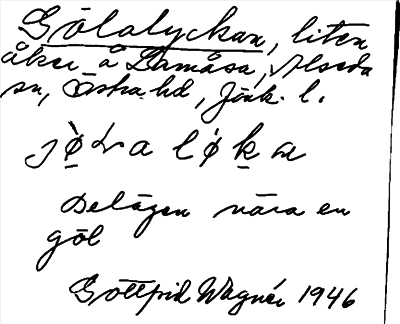 Gölalyckan, liten
åker å Damåsa, Alseda
sn, Östra hd, Jönk. l.
Belägen nära en
göl
Gottfrid Wagnér 1946